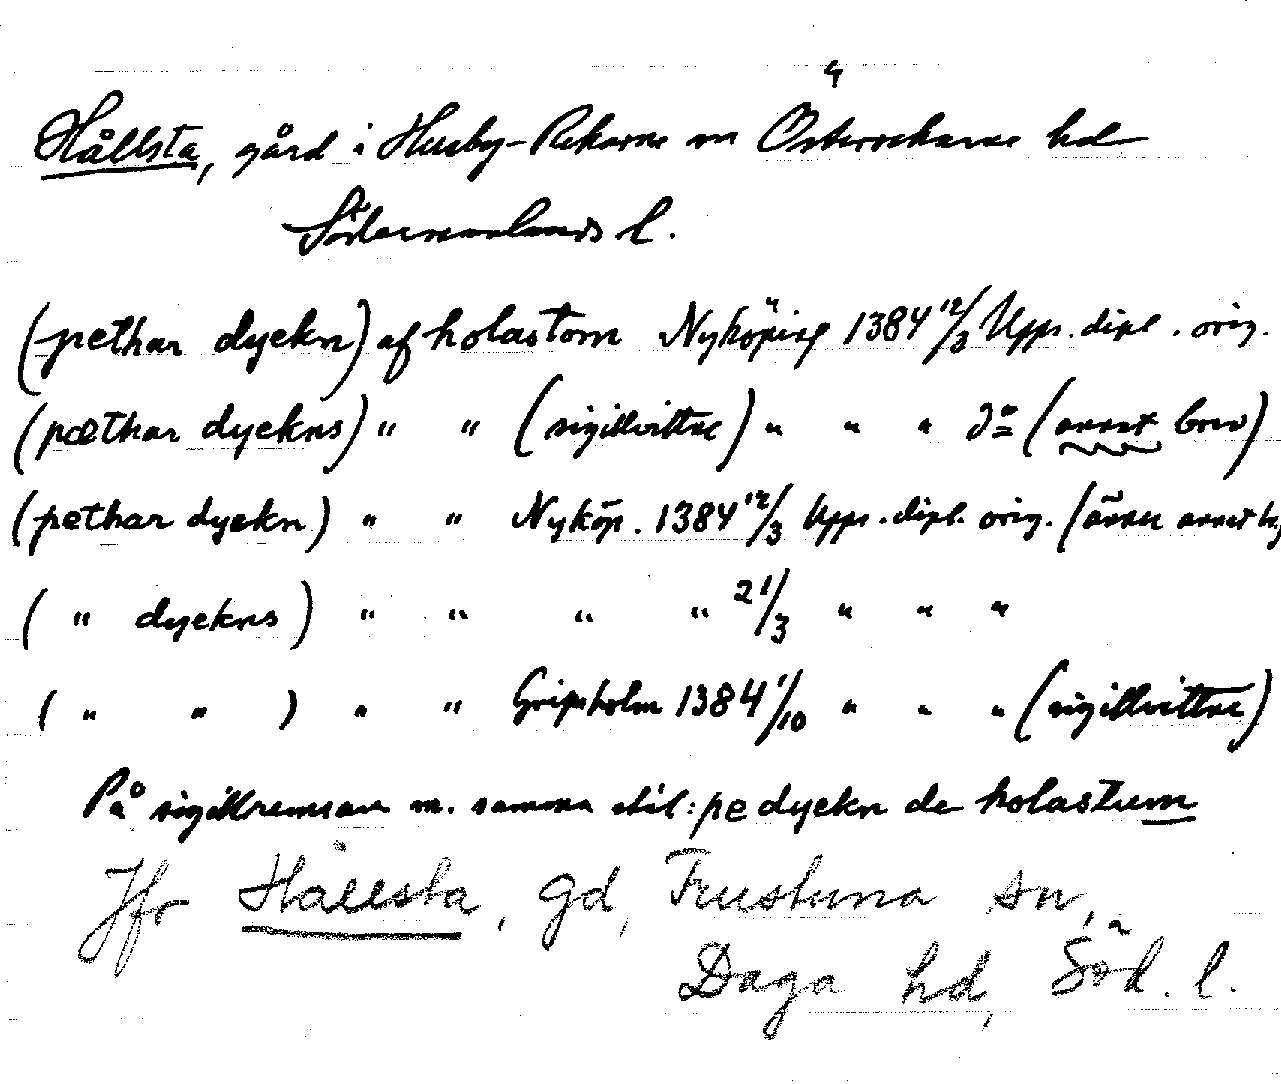 Hållsta, gård i Husby-Rekarne sn Österrekarne hd
Södermanlands l.
(pethar dyekn) af holastom Nyköping 1384 12/3 Upps. dipl. orig.
(pæthar dyekns) " " (sigillvittne) " " " do (annat brev)
(pethar dyekn) " " Nyköp. 1384 12/3 Upps. dipl. orig. (ännu annat br.
( " dyekns) " " " " 21/3 " " "
( " " ) " " Gripsholm 1384 1/10 " " " (sigillvittne)
På sigillremsan m. samma stil: pe dyekn de holastum
Jfr Hållsta, gd, Frustuna sn,
Daga hd, Söd. l.